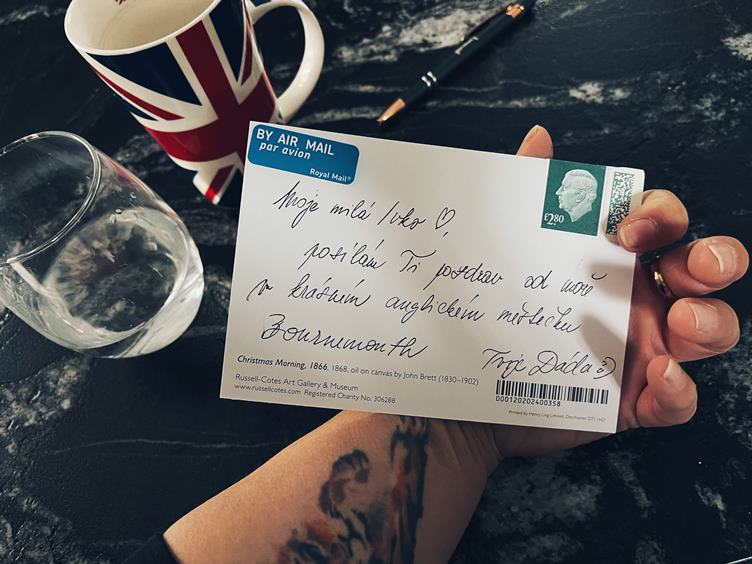 BY AIR MAIL
par avion
Royal Mail®
£2.80
Moje milá Ivko ♡
posílám Ti pozdrav od moře
v krásném anglickém městečku
Bournemouth
Tvoje Dáda :)
Christmas Morning, 1866, 1868, oil on canvas by John Brett (1830–1902)
Russell-Cotes Art Gallery & Museum
www.russellcotes.com Registered Charity No. 306288
000120202400358
Printed by Henry Ling Limited, Dorchester, DT1 1HD